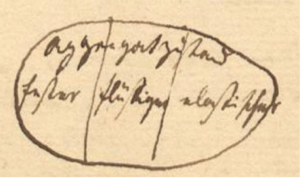 Aggregatzustand
fester flüssiger elastischer